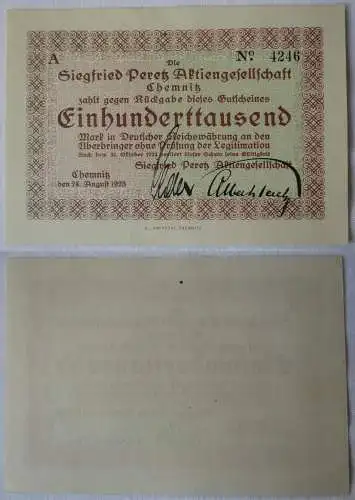 A
Nº 4246
Die
Siegfried Peretz Aktiengesellschaft
Chemnitz
zahlt gegen Rückgabe dieses Gutscheines
Einhunderttausend
Mark in Deutscher Reichswährung an den
Überbringer ohne Prüfung der Legitimation
Nach dem 31. Oktober 1923 verliert dieser Schein seine Gültigkeit
Siegfried Peretz Aktiengesellschaft
Chemnitz
den 24. August 1923